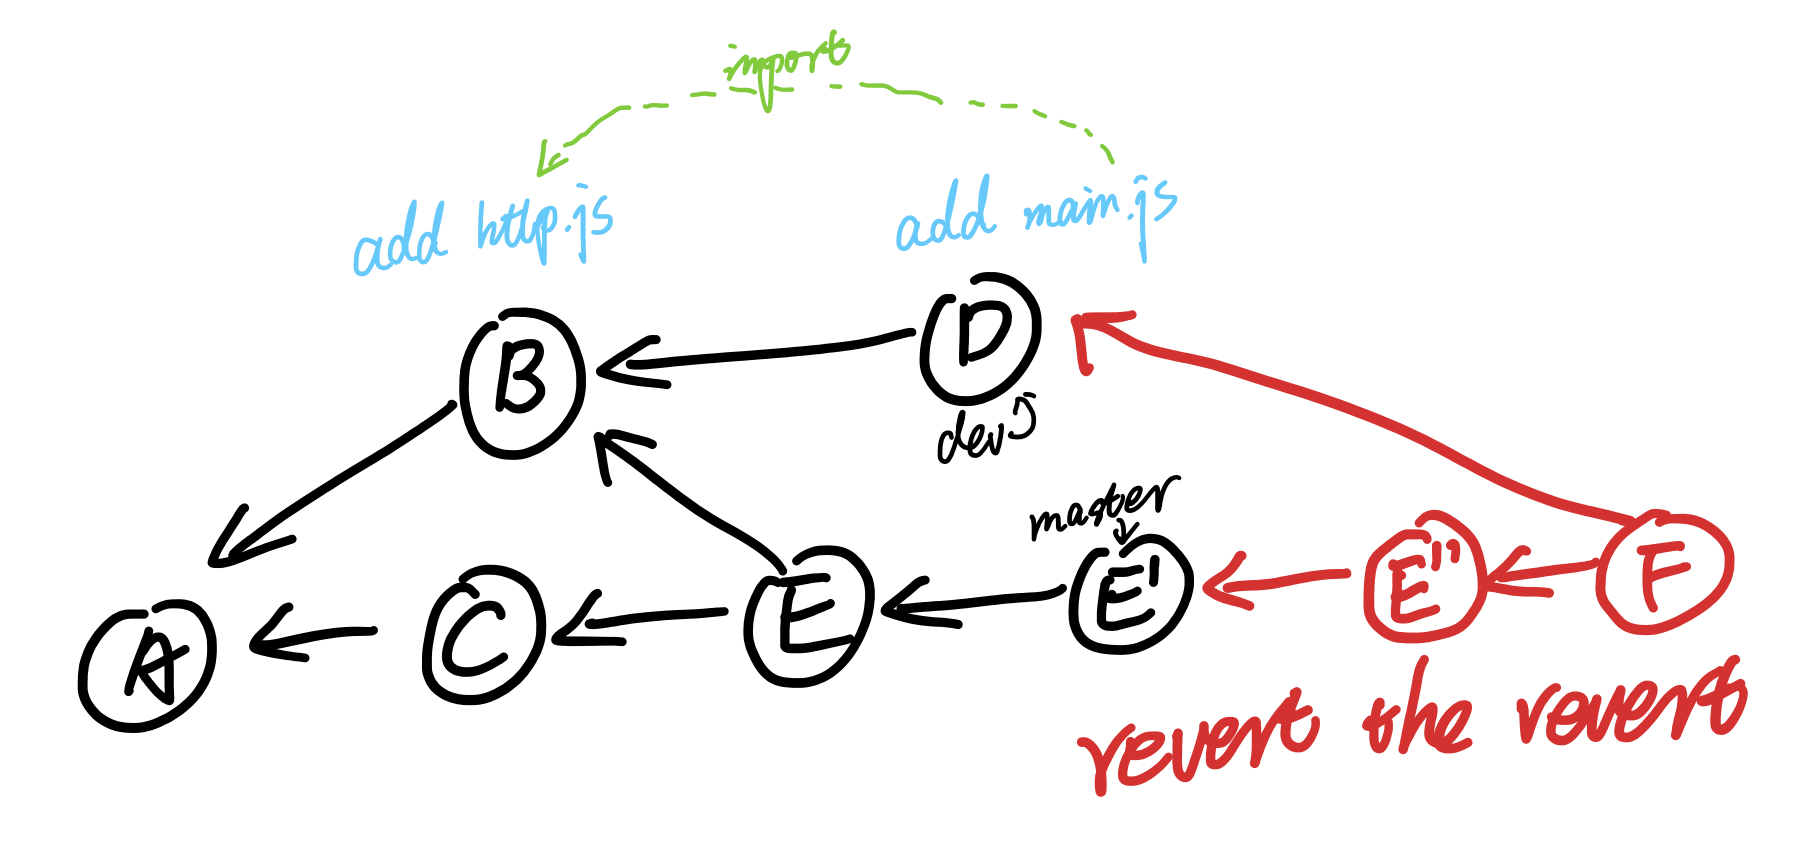 import
add http.js
add main.js
B
D
devj
master
A
C
E
E'
E''
F
revert the revert